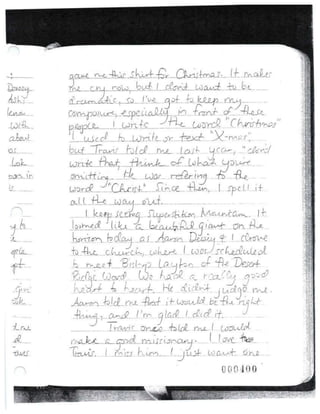 gave me this shirt for Christmas. It makes
me cry now, but I don't want to be
dramatic, so I've got to keep my
composure, especially in front of these
people. I write the word "Christmas"
I used to write or text "X-mas",
but Travis told me last year, "don't
write that, think of what you're
omitting. He was referring to the
word "Christ" Since then, I spell it
all the way out.
I keep seeing Superstition Mountain. It
loomed like a beautiful giant on the
horizon today as Aaron Dewey & I drove
to the church, where I was scheduled
to meet Bishop Layton of the Desert
Ridge Ward. We had a really good
heart to heart. He didn't judge me.
Aaron told me that it would be the right
thing, and I'm glad I did it.
Travis once told me I would
make a good missionary. I love
Travis. I miss him. I just want one
000400